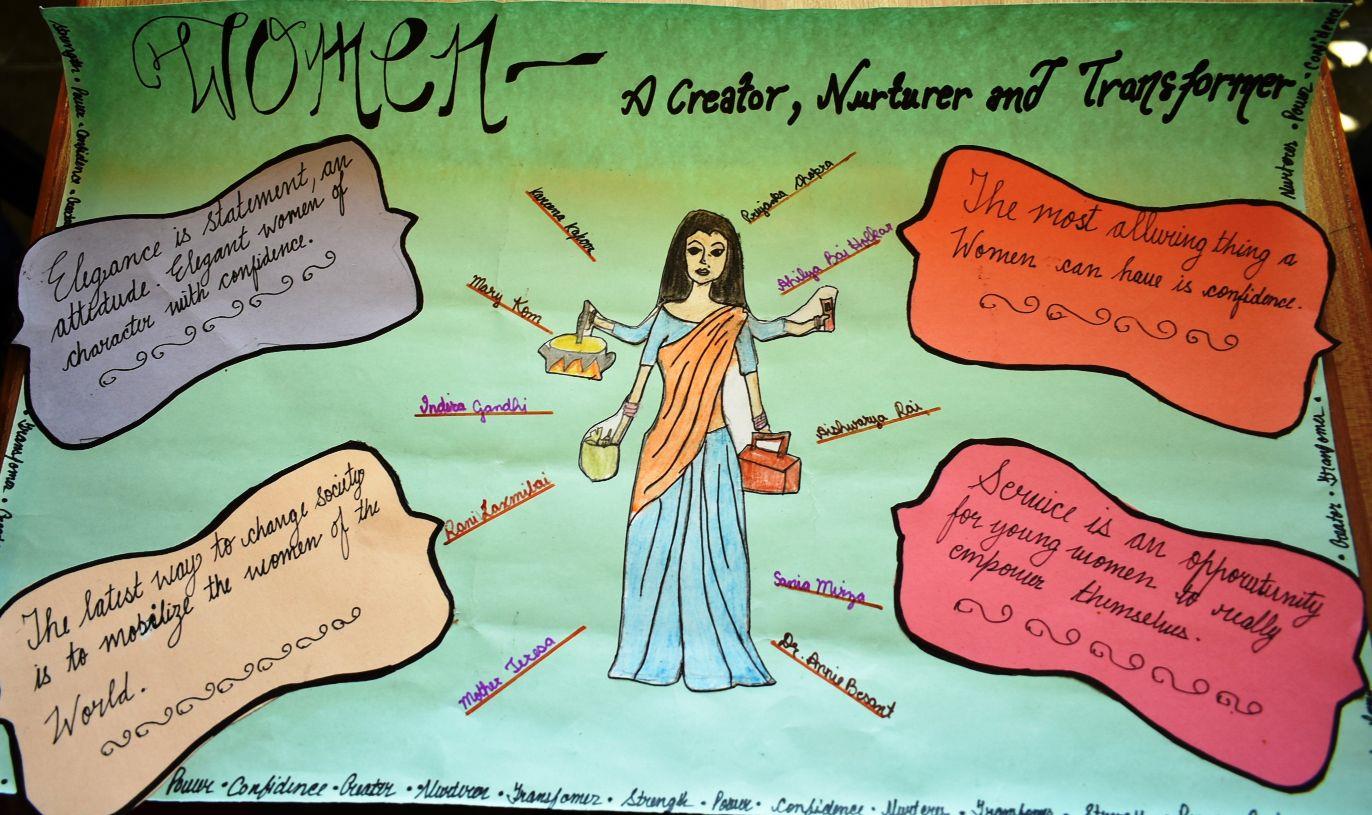 Women —
A Creator, Nurturer and Transformer
Elegance is statement, an
attitude. Elegant women of
character with confidence.
The most alluring thing a
Women can have is confidence.
The latest way to change society
is to mobilize the women of the
World.
Service is an opporutunity
for young women to really
empower themselves.
Kareena Kapoor
Priyanka Chopra
Ahilya Bai Holkar
Mary Kom
Indira Gandhi
Aishwarya Rai
Rani Laxmibai
Sania Mirza
Mother Teresa
Dr. Annie Besant
Strength • Power • Confidence •
Nurterer • Power • Confidence
Creator • Transfomer •
Power • Confidence • Creater • Nurterer • Transfomer • Strength • Power • Confidence •